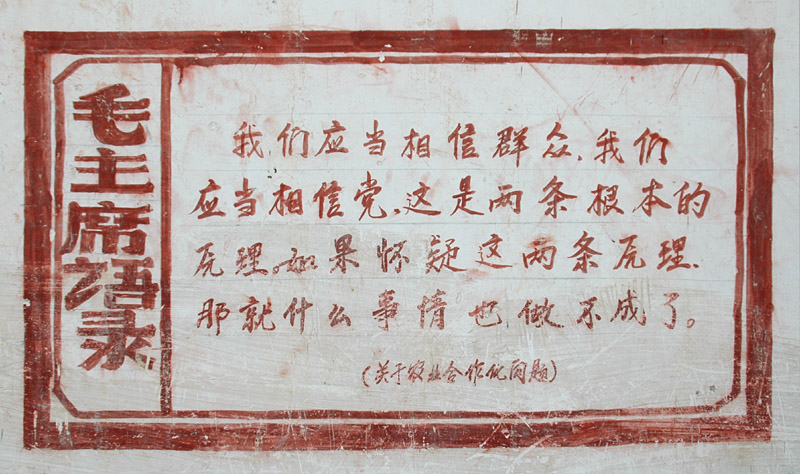 毛主席语录
我们应当相信群众,我们
应当相信党,这是两条根本的
原理。如果怀疑这两条原理,
那就什么事情也做不成了。
(关于农业合作化问题)